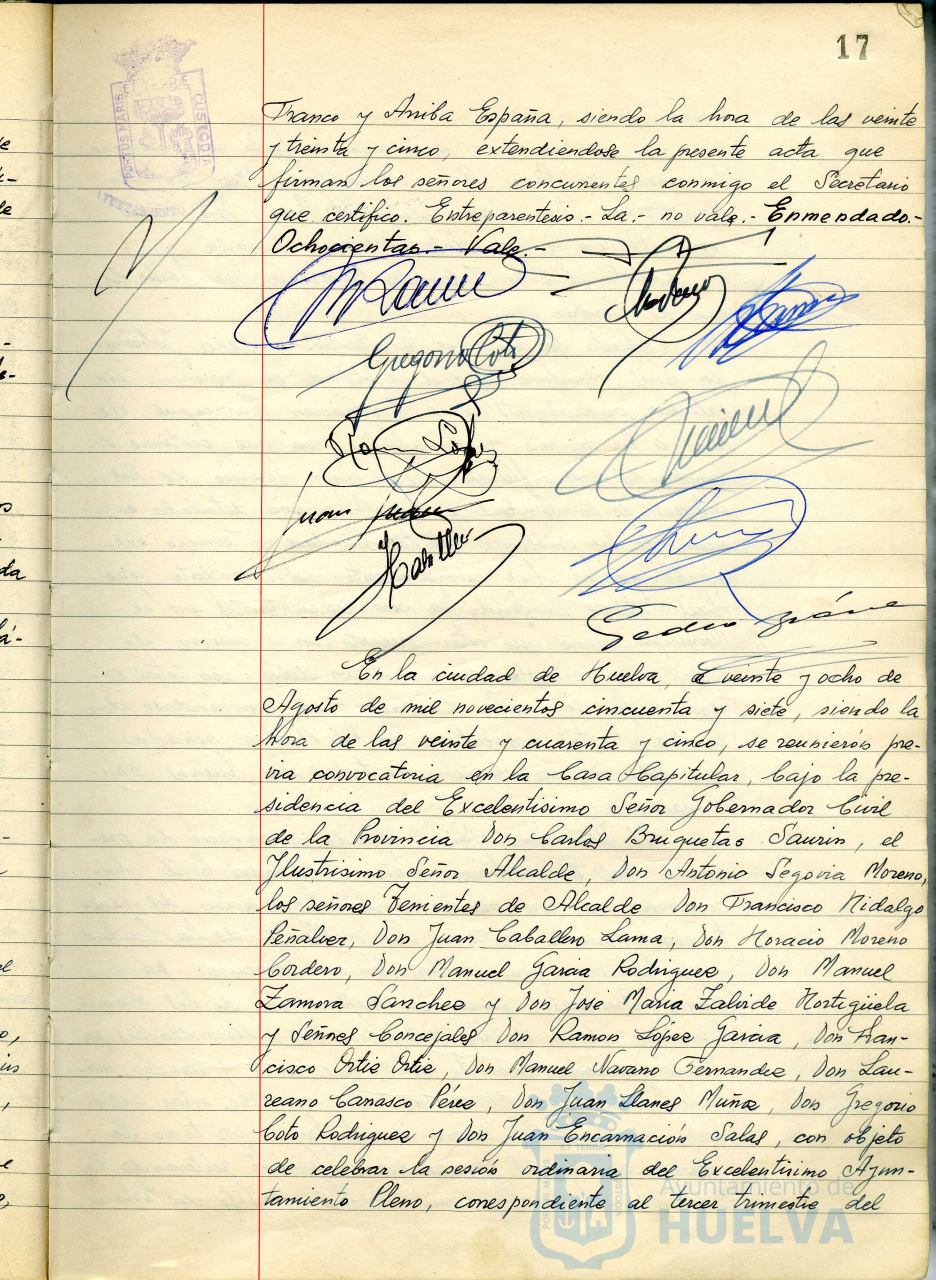 17
PORTUS MARIS
CUSTODIA
Franco y Arriba España, siendo la hora de las veinte
y treinta y cinco, extendiendose la presente acta que
firman los señores concurrentes conmigo el Secretario
que certifico. Entreparentesis.- La.- no vale.- Enmendado.-
Ochocientas.- Vale.-
Gregorio Coto
Ramon López
En la ciudad de Huelva, a veinte y ocho de
Agosto de mil novecientos cincuenta y siete, siendo la
hora de las veinte y cuarenta y cinco, se reunierón pre-
via convocatoria en la Casa Capitular, bajo la pre-
sidencia del Excelentisimo Señor Gobernador Civil
de la Provincia Don Carlos Bruquetas Saurin, el
Ilustrisimo Señor Alcalde, Don Antonio Segovia Moreno,
los señores Tenientes de Alcalde Don Francisco Hidalgo
Peñalver, Don Juan Caballero Lama, Don Horacio Moreno
Cordero, Don Manuel Garcia Rodriguez, Don Manuel
Zamora Sánchez y Don José Maria Zalvide Hortigüela
y Señores Concejales Don Ramon López Garcia, Don Fran-
cisco Ortiz Ortiz, Don Manuel Navarro Fernandez, Don Lau-
reano Carrasco Pérez, Don Juan Llanes Muñoz, Don Gregorio
Coto Rodriguez y Don Juan Encarnación Salas, con objeto
de celebrar la sesión ordinaria del Excelentisimo Ayun-
tamiento Pleno, correspondiente al tercer trimestre del
Ayuntamiento de
HUELVA